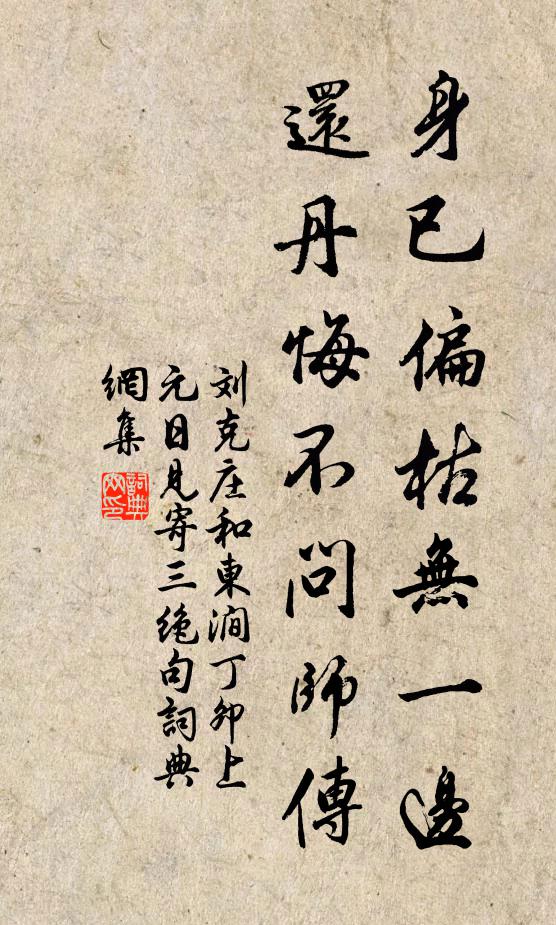 身已偏枯無一邊
還丹悔不問師傳
刘克庄和東澗丁卯上
元日見寄三絶句詞典
網集
詞典
网印